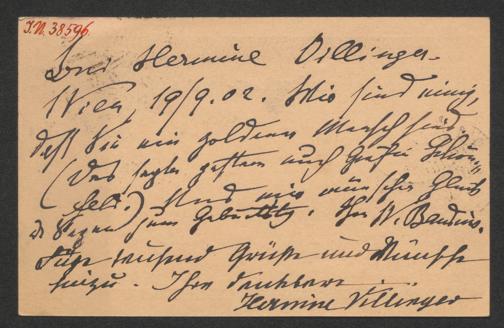 I.N. 38596
Hermine Villinger.
Wien, 19/9.02. Wir sind einig,
daß Sie ein goldener Mensch sind.
(Das sagte gestern auch Gräfin Schön-
feld.) Und wir wünschen Glück
u Segen zum Geburtstag. Ihr
Füge tausend Grüße und Wünsche
hinzu. Ihre dankbare
Hermine Villinger